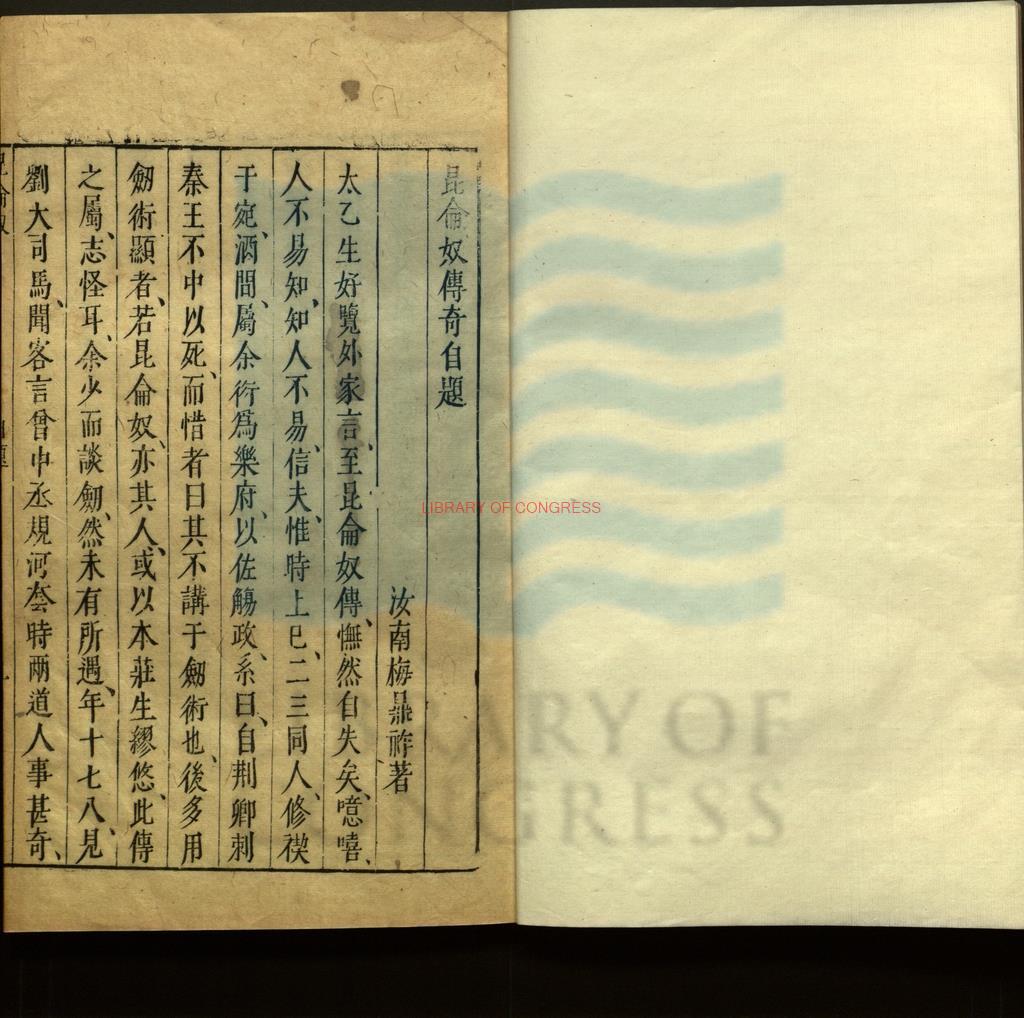 昆侖奴傳奇自題
汝南梅鼎祚著
太乙生好覽外家言、至昆侖奴傳、憮然自失矣、噫嘻、
人不易知、知人不易、信夫、惟時上巳、二三同人、修禊
于宛、酒間、屬余衍爲樂府、以佐觴政、系曰、自荆卿刺
秦王不中以死、而惜者曰其不講于劒術也、後多用
劒術顯者、若昆侖奴、亦其人、或以本莊生繆悠、此傳
之屬、志怪耳、余少而談劒、然未有所遇、年十七八、見
劉大司馬、聞客言曾中丞規河套時兩道人事甚奇、
LIBRARY OF CONGRESS
LIBRARY OF
CONGRESS